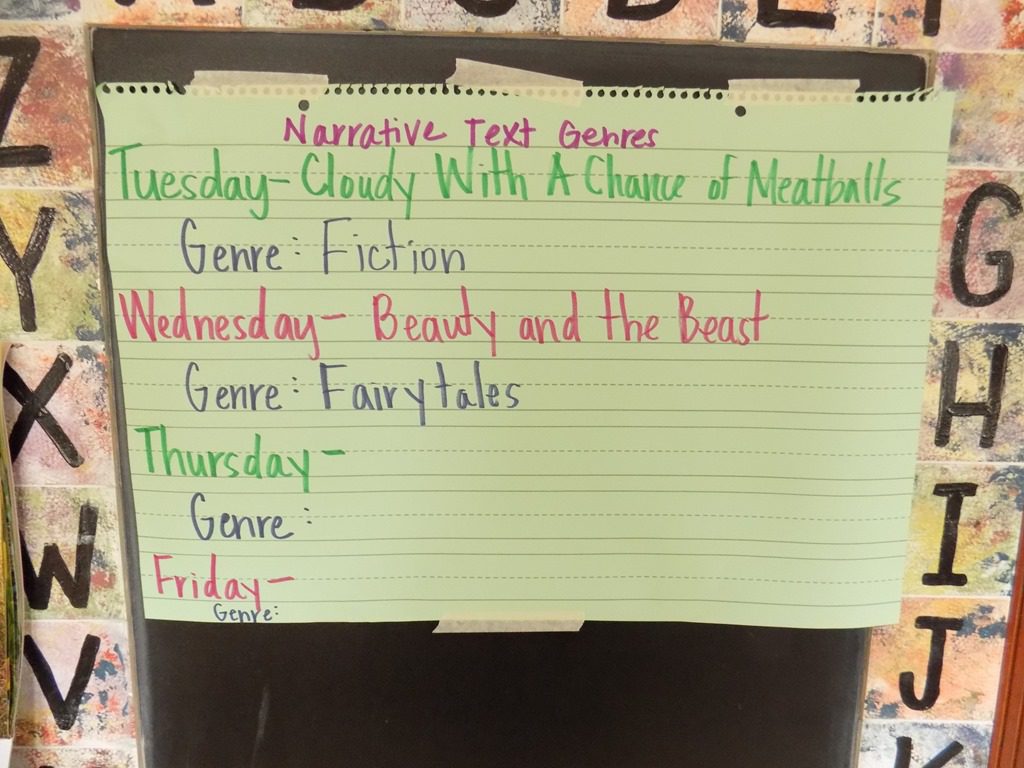 Narrative Text Genres
Tuesday- Cloudy With A Chance of Meatballs
Genre: Fiction
Wednesday- Beauty and the Beast
Genre: Fairytales
Thursday-
Genre:
Friday-
Genre:
Z
Y
X
W
V
G
H
I
J
K